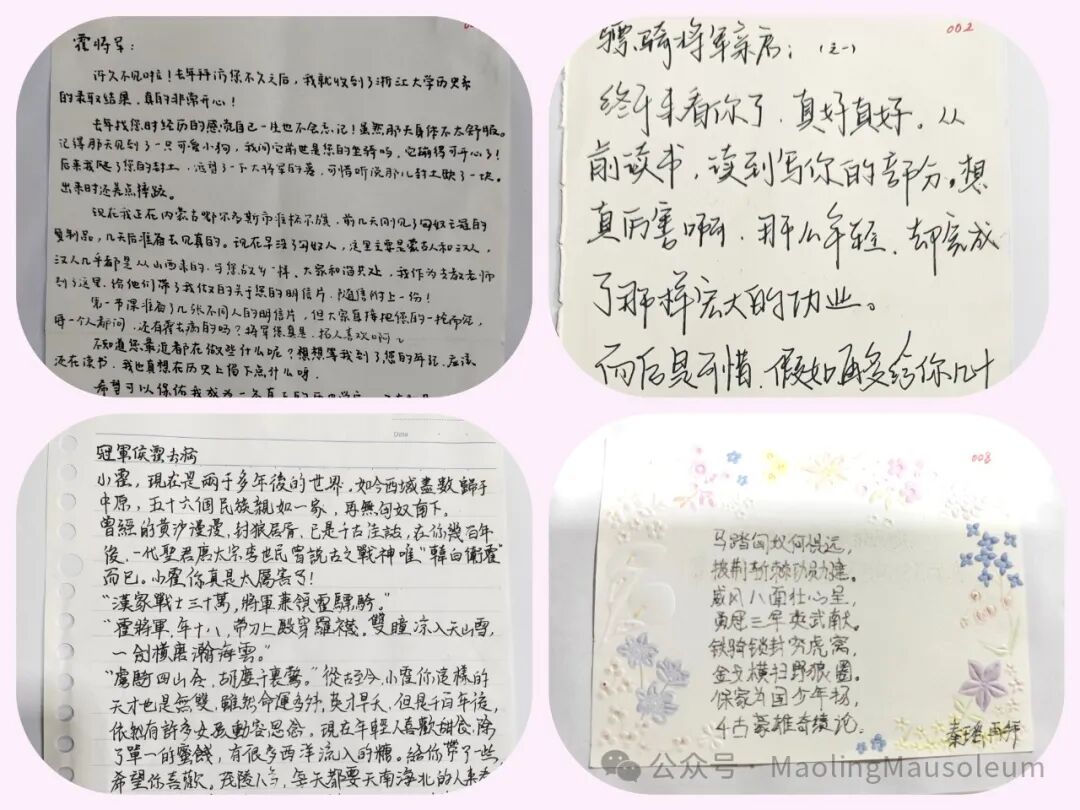 霍将军：
许久不见啦！去年拜访您不久之后，我就收到了浙江大学历史系
的录取结果，真的非常开心！
去年找您时经历的感觉自己一生也不会忘记！虽然那天身体不太舒服。
记得那天见到了一只可爱小狗，我问它前世是您的坐骑吗，它蹦得可开心了！
后来我爬了您的封土，远望了一下大将军的墓，可惜听说那儿封土缺了一块。
出来时还差点摔跤。
现在我正在内蒙古鄂尔多斯市准格尔旗，前几天刚见了匈奴王冠的
复制品，几天后准备去见真的。现在早没了匈奴人，这里主要是蒙古人和汉人，
汉人几乎都是从山西来的，与您故乡一样。大家和谐共处，我作为支教老师
到了这里，给他们带了我做的关于您的明信片，随信附上一份！
第一节课准备了几张不同人的明信片，但大家直接把您的一抢而空，
每一个人都问，还有霍去病的吗？将军您真是招人喜欢啊～
不知道您最近都在做些什么呢？想想等我到了您的年纪，应该
还在读书，我也真想在历史上留下点什么呀。
002
骠骑将军亲启：（之一）
终于来看你了，真好真好。从
前读书，读到写你的部分，想
真厉害啊，那么年轻，却完成
了那样宏大的功业。
而后是可惜，假如再多给你几十
Date
冠軍侯霍去病
小霍，現在是兩千多年後的世界，如今西域盡數歸于
中原，五十六個民族親如一家，再無匈奴南下。
曾經的黃沙漫漫，封狼居胥，已是千古佳話，在你幾百年
後，一代聖君唐太宗李世民曾說古之戰神唯“韓白衛霍”
而已。小霍你真是太厲害了！
“漢家戰士三十萬，將軍兼領霍驃騎。”
“霍將軍，年十八，帶刀上殿穿羅襪。雙瞳凉入天山雪，
一劍橫磨瀚海雲。”
“虜騎四山合，胡塵千裏驚。”從古至今，小霍你這樣的
天才也是無雙，雖然命運多舛，英才早夭，但是千百年後，
依然有許多女孩動容思念，現在年輕人喜歡甜食，除
了單一的蜜餞，有很多西洋流入的糖。給你帶了一些，
希望你喜歡。茂陵人，每天都要天南海北的人來看
008
马踏匈奴何惧远，
披荆斩棘功勋建。
威风八面壮心呈，
勇冠三军英武献。
铁骑锁封穷虎窝，
金戈横扫野狼圈。
保家为国少年扬，
千古豪雄奇绩论。
秦瑶 再拜
公众号 · MaolingMausoleum